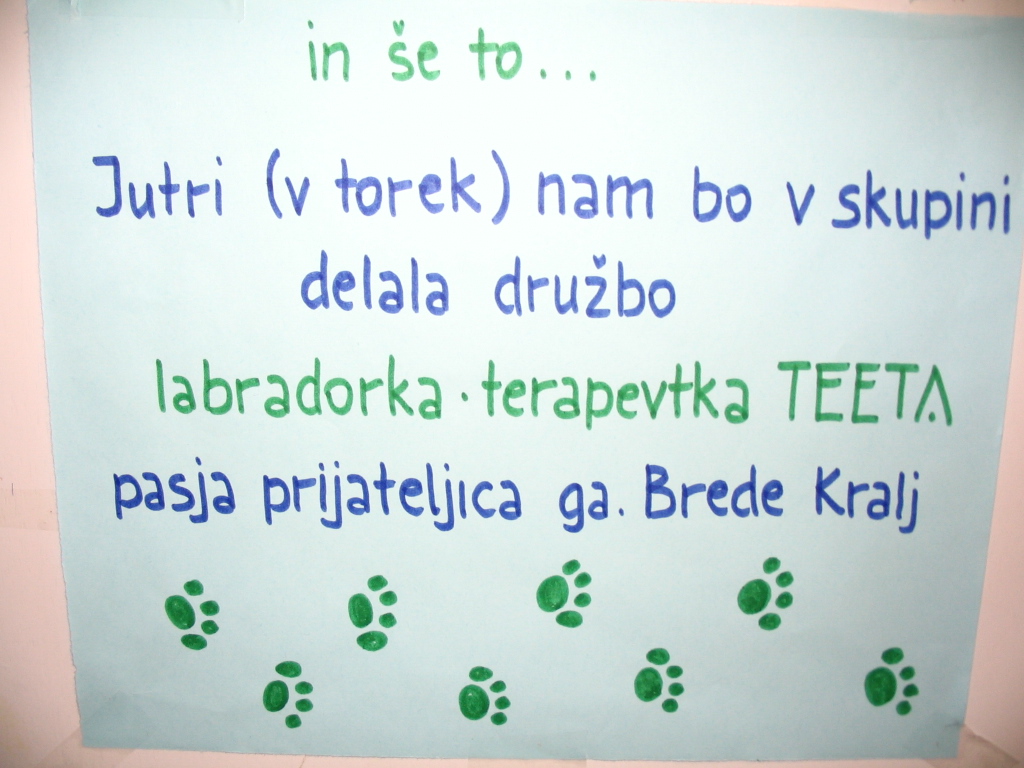 in še to...
Jutri (v torek) nam bo v skupini
delala družbo
labradorka · terapevtka TEETA
pasja prijateljica ga. Brede Kralj